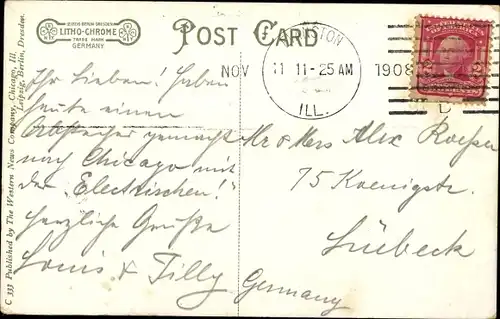 LITHO-CHROME
TRADE MARK
GERMANY
POST CARD
NOV
11 11-25 AM
1908
ILL.
C 333 Published by The Western News Company, Chicago, Ill.
Leipzig, Berlin, Dresden.
Ihr Lieben! Haben
heute einen
gemacht
nach Chicago mit
der "Electrischen!"
herzliche Grüße
Louis & Tilly
Mr & Mrs Alex
75 Koenigstr.
Lübeck
Germany